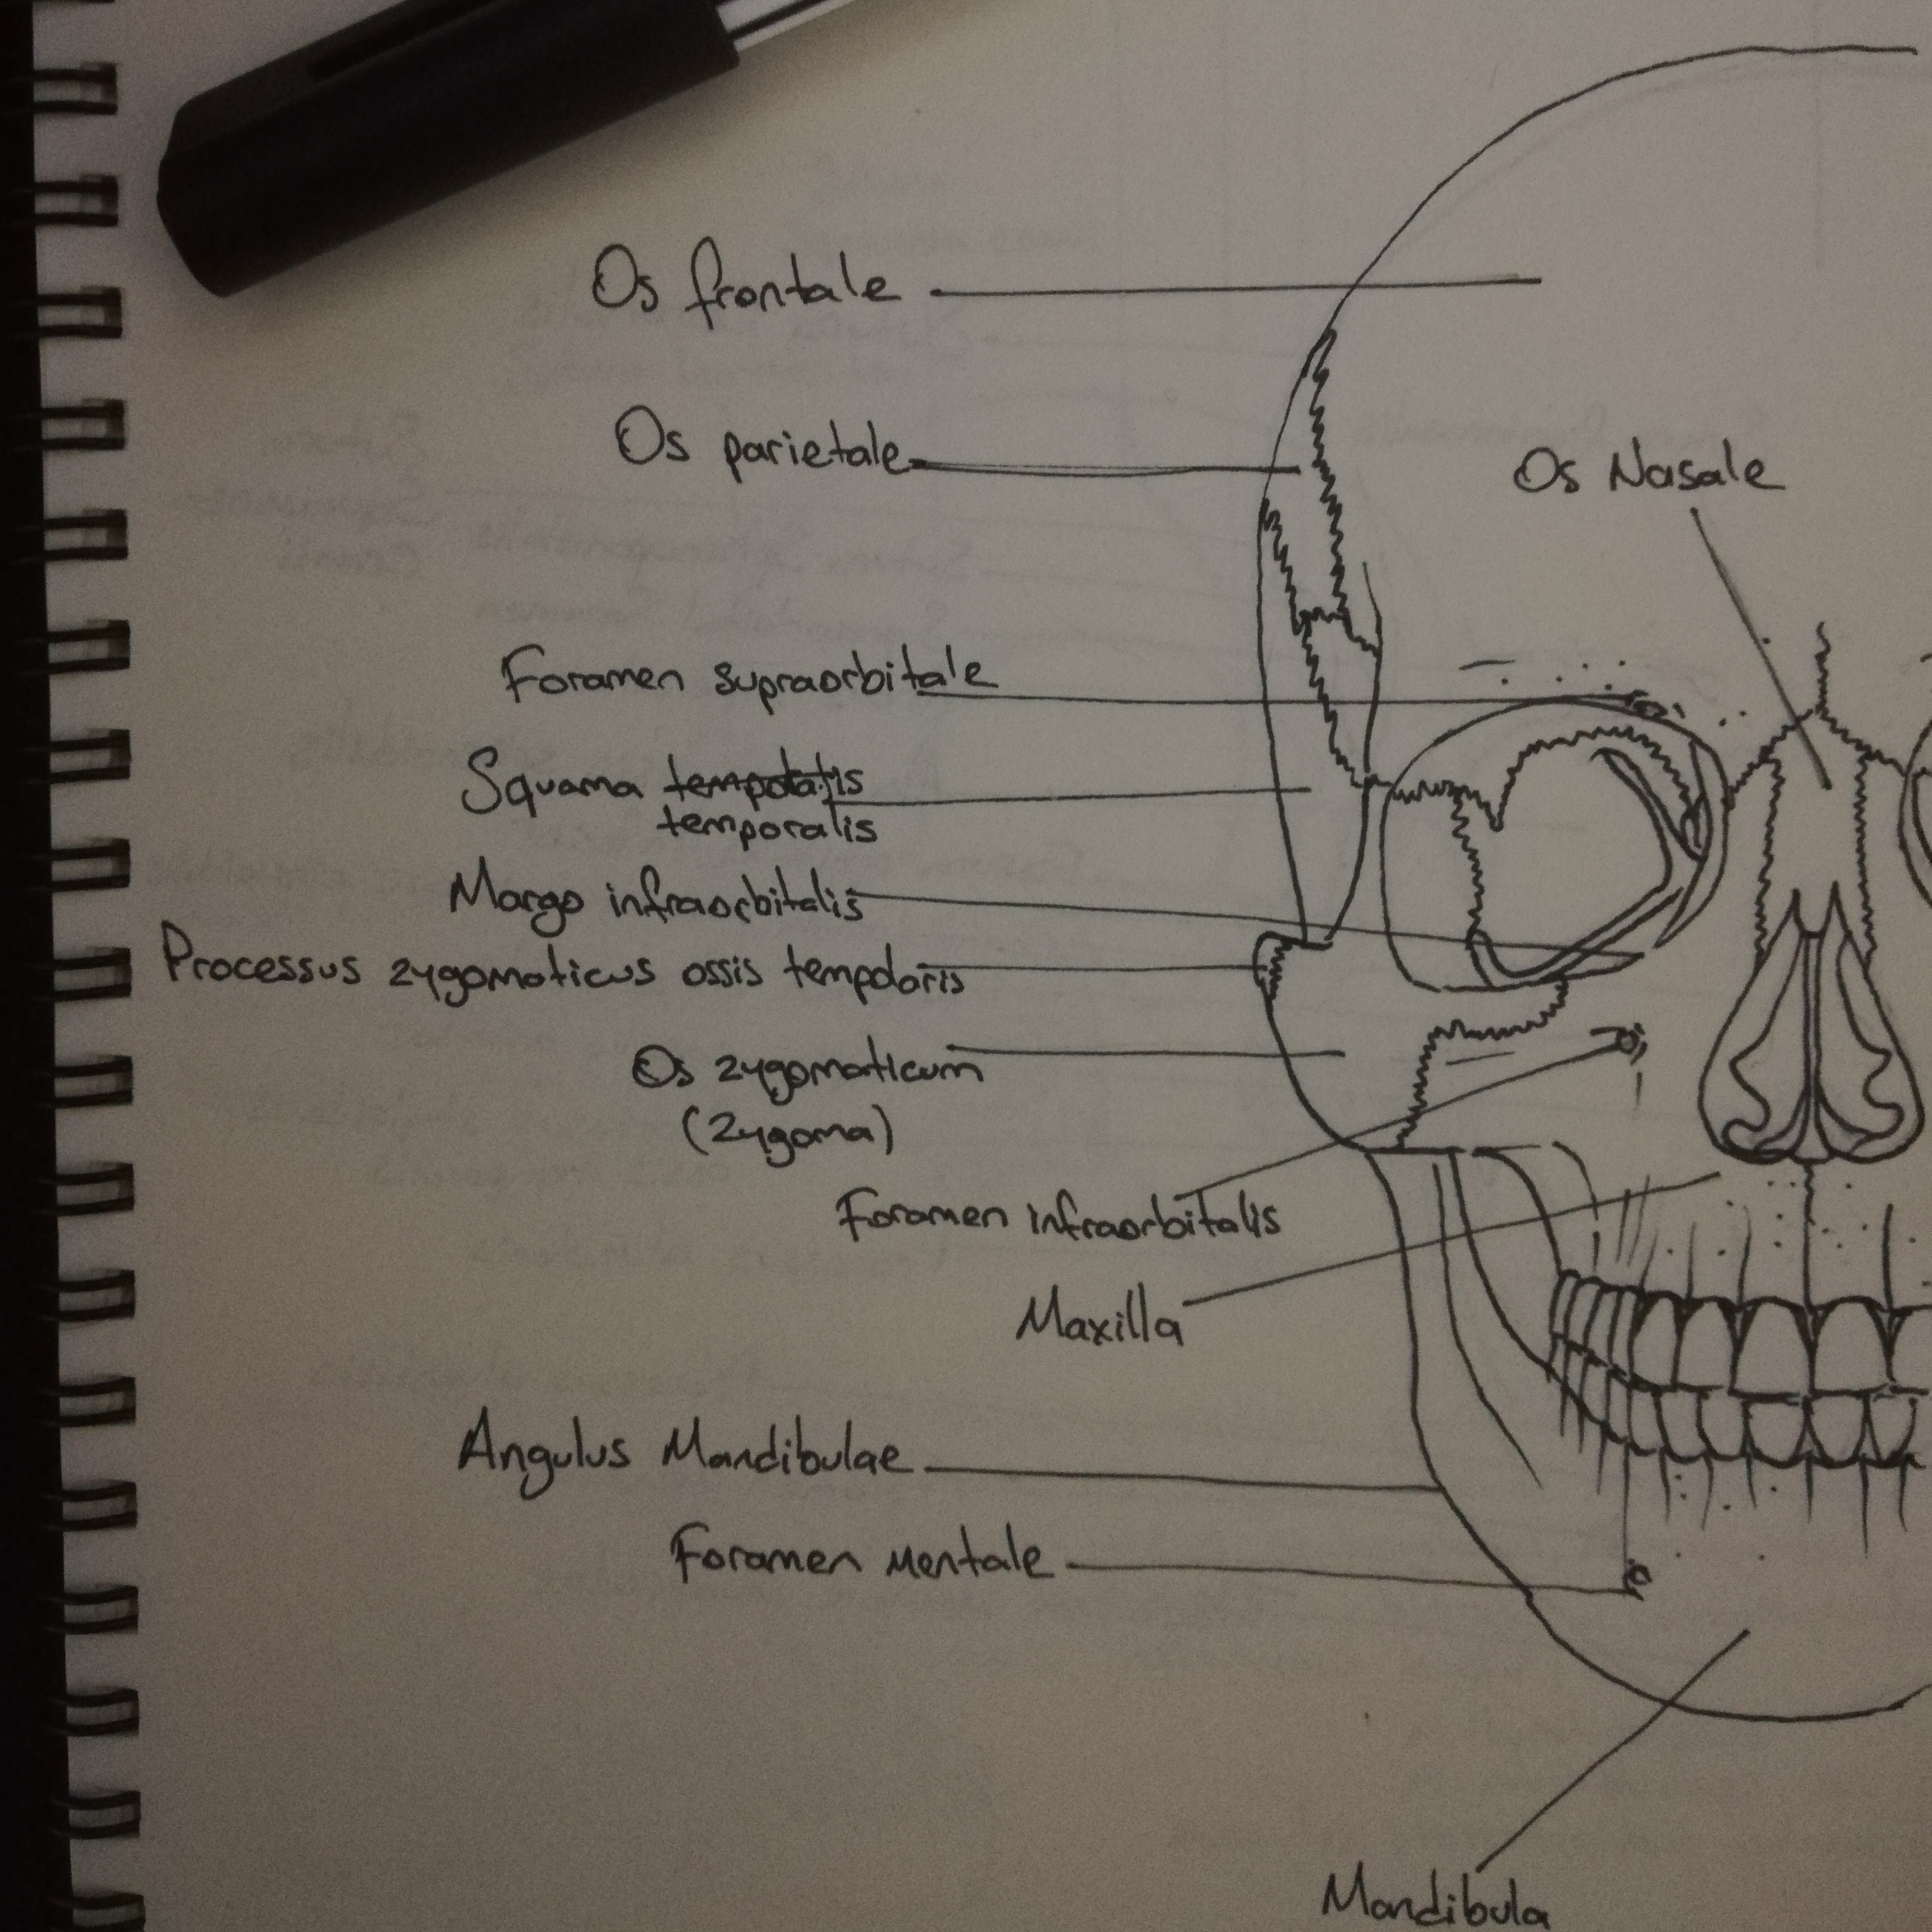 Os frontale
Os parietale
Os Nasale
Foramen supraorbitale
Squama
temporalis
Margo infraorbitalis
Processus zygomaticus ossis tempolaris
Os zygomaticum
(Zygoma)
Foramen infraorbitalis
Maxilla
Angulus Mandibulae
Foramen Mentale
Mandibula